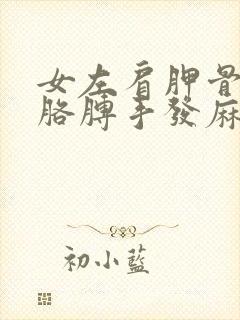 女左肩胛骨
胳膊手發麻
初小藍